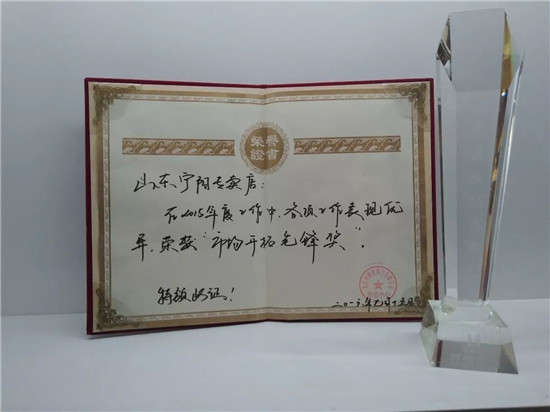 榮譽
證書
山东宁阳专卖店:
在2015年度工作中,各项工作表现优
异,荣获“市场开拓先锋奖”。
特颁此证!
二〇一六年元月十五日